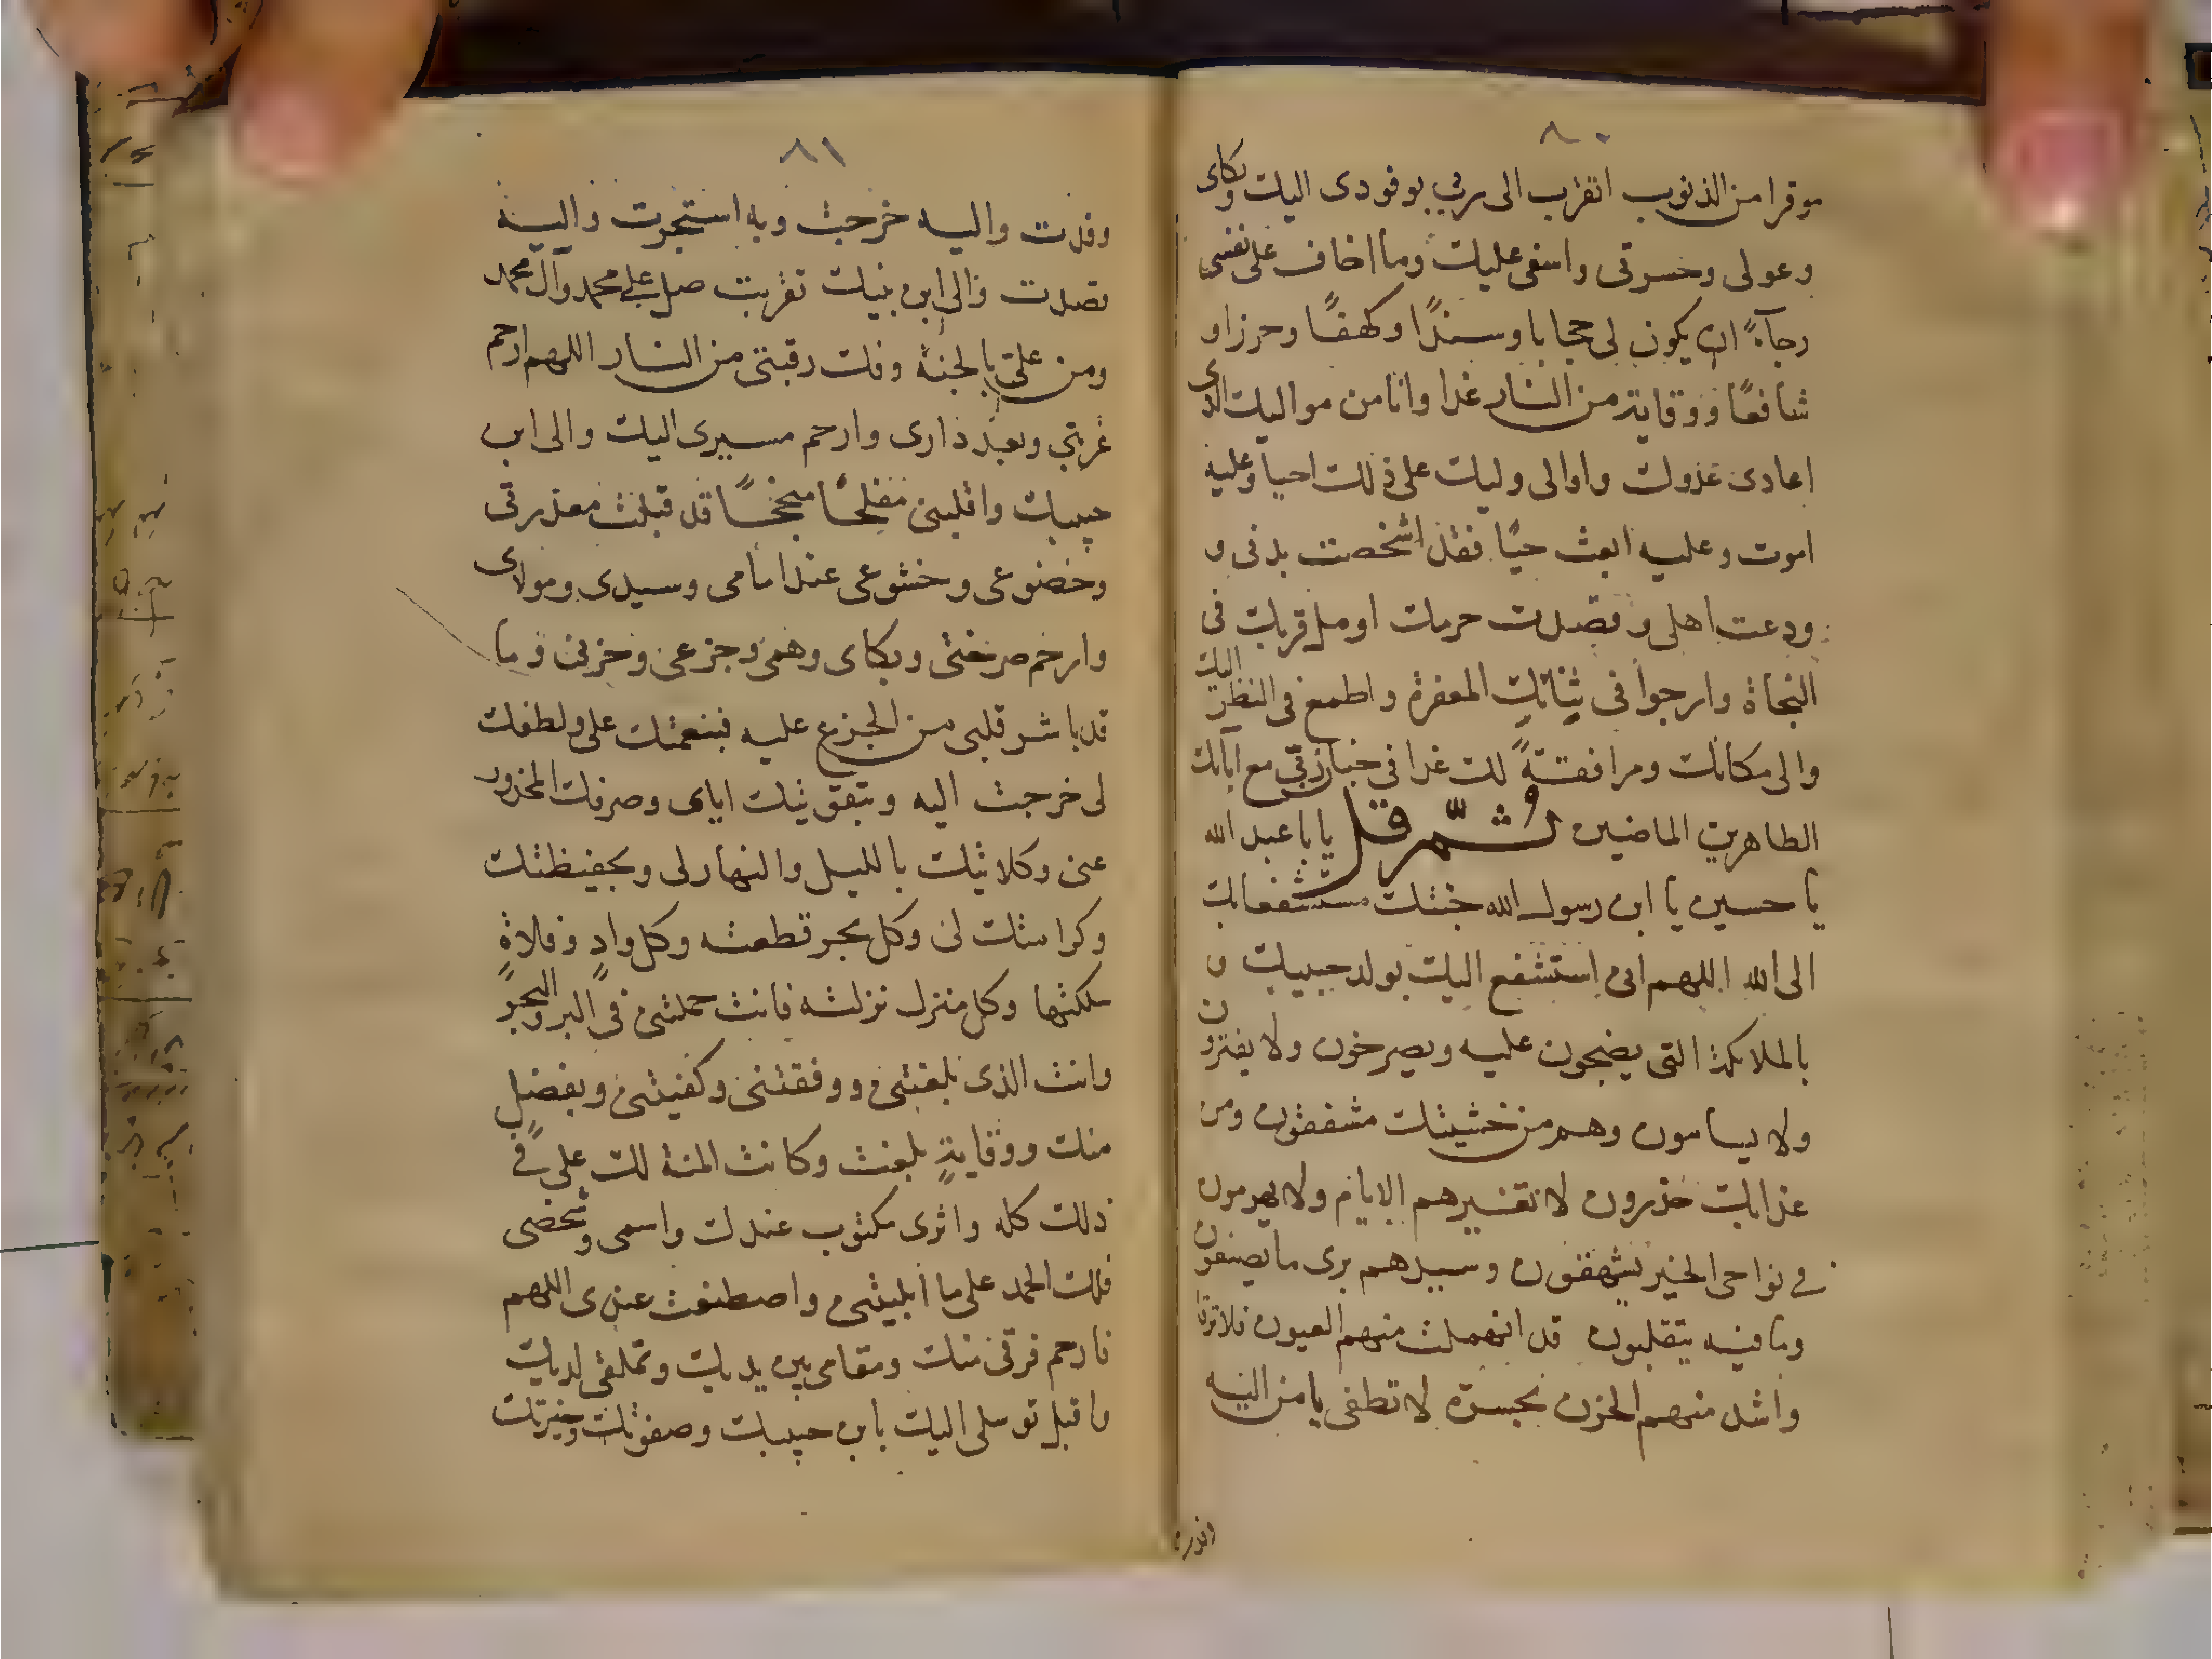 ٨٠
موقرا من الذنوب اتقرب الى ربي بوفودى اليك وبكاى
وعولى وحسرتى واسفى عليك وما اخاف على نفسى
رجآءً ان يكون لى حجابا وسندًا وكهفًا وحرزا و
شافعًا ووقاية من النار غدا وانا من مواليك الذى
اعادى عدوك واوالى وليك على ذلك احيا وعليه
اموت وعليه ابعث حيًا فقد اشخصت بدنى و
ودعت اهلى وقصدت حرمك اومل قربك فى
النجاة وارجوا فى ثنائك المغفرة واطمع فى النظر اليك
والى مكانك ومرافقتةً لك غدا فى جنان ربى مع آبائك
الطاهرين الماضين ثُمّ قل يا با عبد الله
يا حسين يا ابن رسول الله جئتك مستشفعا بك
الى الله اللهم انى استشفع اليك بولد حبيبك و
بالملائكة التى يضجون عليه ويصرخون ولا يفترون
ولا يسامون وهم من خشيتك مشفقون ومن
عذابك حذرون لا تغيرهم الايام ولا يهرمون
فى نواحى الخير يشهقون وسيدهم يرى ما يصنعون
وما فيه يتقلبون قد انهملت منهم العيون فلا ترقا
واشد منهم الحزن بحسرة لا تطفى يا من اليه
وفدت
٨١
وفدت واليه خرجت وبه استجرت واليه
قصدت والى ابن نبيك تقربت صل على محمد وآل محمد
ومن على بالجنة وفك رقبتى من النار اللهم ارحم
غربتى وبعد دارى وارحم مسيرى اليك والى ابن
حبيبك واقلبنى مفلحًا منجحًا قد قبلت معذرتى
وخضوعى وخشوعى عند امامى وسيدى ومولاى
وارحم صرختى وبكاى وهمى وجزعى وحزنى وما
قد باشر قلبى من الجزع عليه فبنعمتك على ولطفك
لى خرجت اليه وبتقويتك اياى وصرفك المحذور
عنى وكلائتك بالليل والنهار لى وبحفيظتك
وكرامتك لى وكل بحر قطعته وكل وادٍ وفلاةٍ
سلكتها وكل منزل نزلته فانت حملتنى فى البر والبحر
وانت الذى بلغتنى ووفقتنى وكفيتنى وبفضل
منك ووقايةٍ بلغت وكانت المنة لك على فى
ذلك كله واثرى مكتوب عندك واسمى وشخصى
فلك الحمد على ما ابليتنى واصطنعت عندى اللهم
فارحم فرقى منك ومقامى بين يديك وتملقى لديك
واقبل توسلى اليك بابن حبيبك وصفوتك وخيرتك